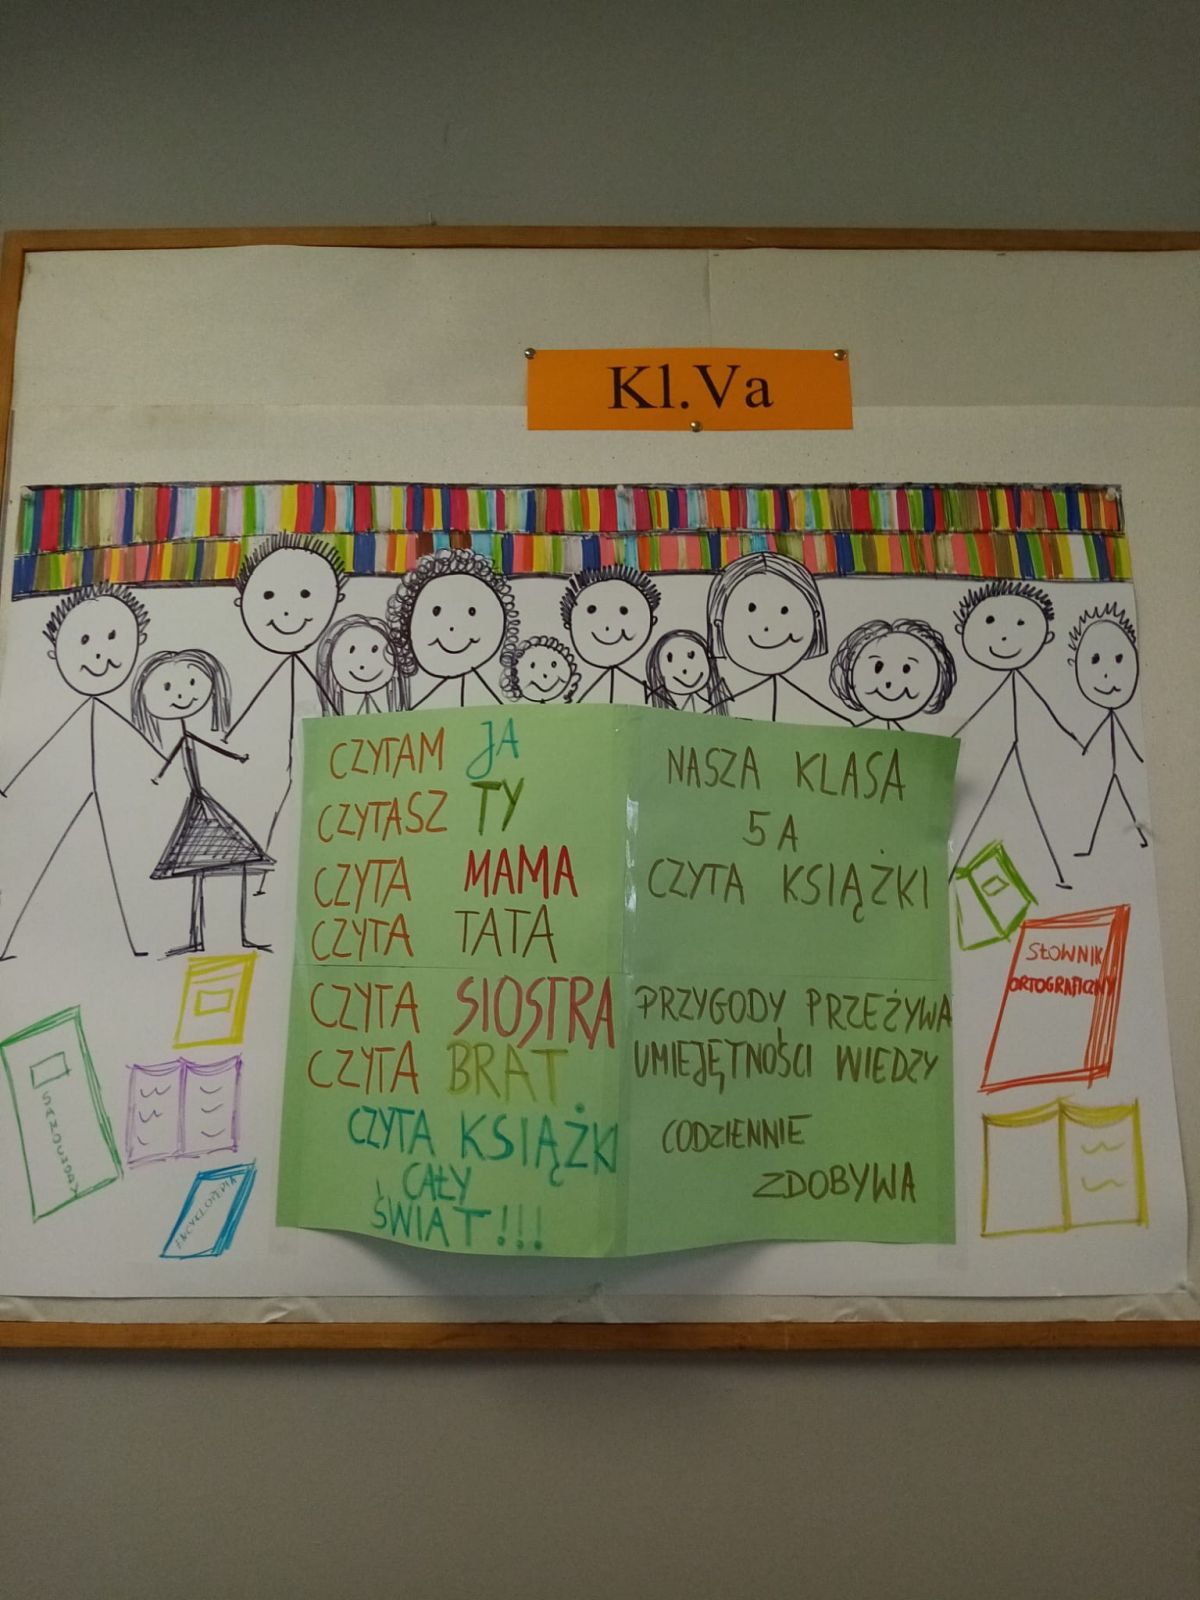 Kl.Va
CZYTAM JA
CZYTASZ TY
CZYTA MAMA
CZYTA TATA
CZYTA SIOSTRA
CZYTA BRAT
CZYTA KSIĄŻKI
CAŁY
ŚWIAT!!!
NASZA KLASA
5 A
CZYTA KSIĄŻKI
PRZYGODY PRZEŻYWA
UMIEJĘTNOŚCI WIEDZY
CODZIENNIE
ZDOBYWA
ENCYKLOPEDIA
SŁOWNIK
ORTOGRAFICZNY